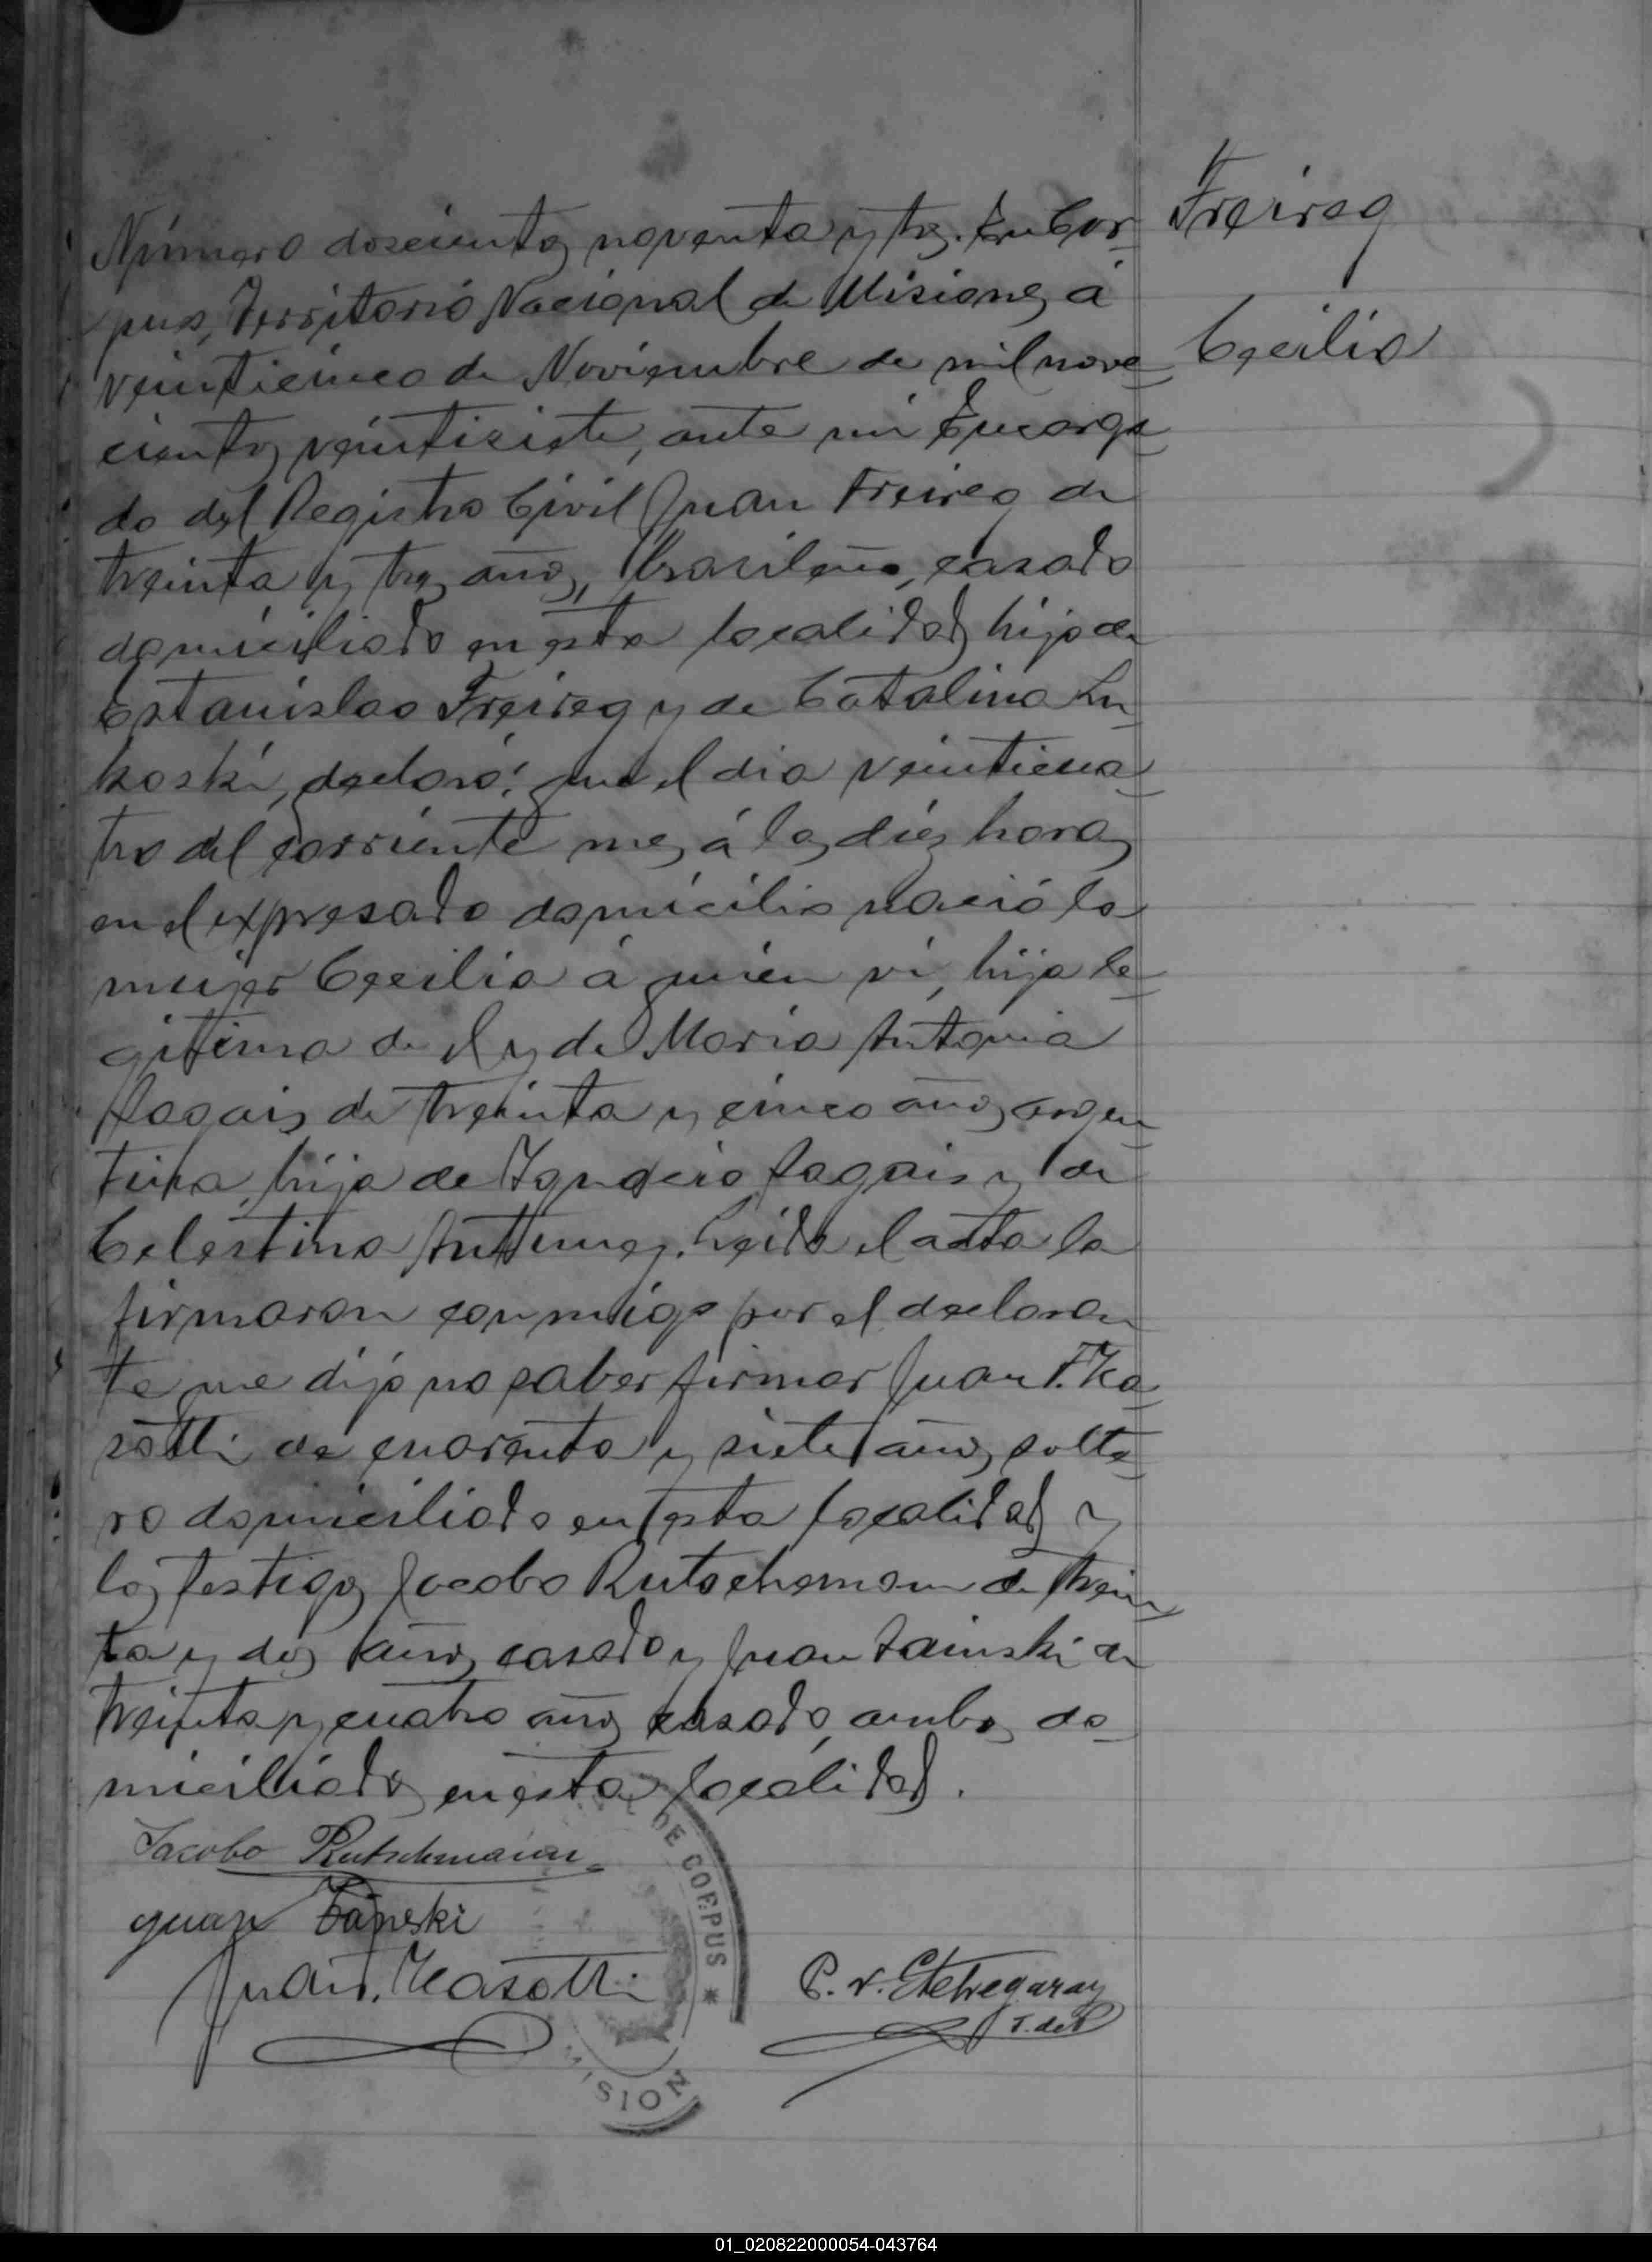 Freireg
Número doscientos noventa y tres. En Cor-
pus, Territorio Nacional de Misiones á
Cecilia
veinticinco de Noviembre de mil nove-
cientos veintisiete, ante mi Encarga-
do del Registro Civil Juan Freireg de
treinta y tres años, brasileño, casado
domiciliado en esta localidad hijo de
Estanislao Freireg y de Catalina Lu-
koski, declaró: que el dia veinticua-
tro del corriente mes á las diez horas
en el expresado domicilio nació la
mujer Cecilia á quien vi, hija le-
gitima de el y de Maria Antonia
de treinta y cinco años argen-
tina, hija de Ignacio y de
Celestina Antunez. Leida el acta la
firmaron conmigo por el declaran-
te que dijo no saber firmar Juan F. Ka-
sotti de cuarenta y siete años solte-
ro domiciliado en esta localidad y
los testigos Jacobo Rutschemann de trein-
ta y dos años casado y Juan Zainski de
treinta y cuatro años casado, ambos do-
miciliados en esta localidad.
DE CORPUS *
Jacobo Rutschmann
Juan Zainski
Juan F. Kasotti
P. V. Etchegaray
J. de P
MISION
01_020822000054-043764